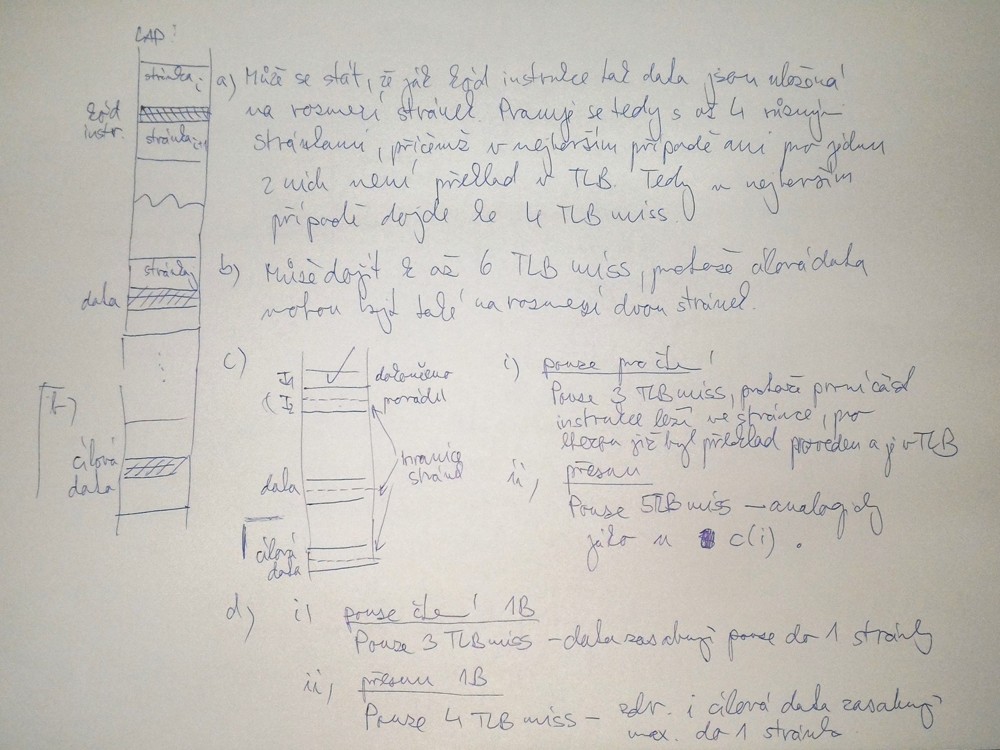 LAP:
stránka i
kód
instr.
stránka i+1
stránka j
data
b)
cílová
data
a) Může se stát, že jak kód instrukce tak data jsou uložená
na rozmezí stránek. Pracuje se tedy s až 4 různými
stránkami, přičemž v nejhorším případě ani pro jednu
z nich není překlad v TLB. Tedy v nejhorším
případě dojde ke 4 TLB miss.
b) Může dojít k až 6 TLB miss, protože cílová data
mohou být také na rozmezí dvou stránek.
c)
I1
dokončeno
I2
provádí
hranice
stránek
data
cílová
data
i) pouze pro čtení
Pouze 3 TLB miss, protože první část
instrukce leží ve stránce, pro
kterou již byl překlad proveden a je v TLB
ii, přesun
Pouze 5 TLB miss – analogicky
jako u c(i).
d) i) pouze čtení 1B
Pouze 3 TLB miss – data zasahují pouze do 1 stránky
ii, přesun 1B
Pouze 4 TLB miss – zdr. i cílová data zasahují
max. do 1 stránky